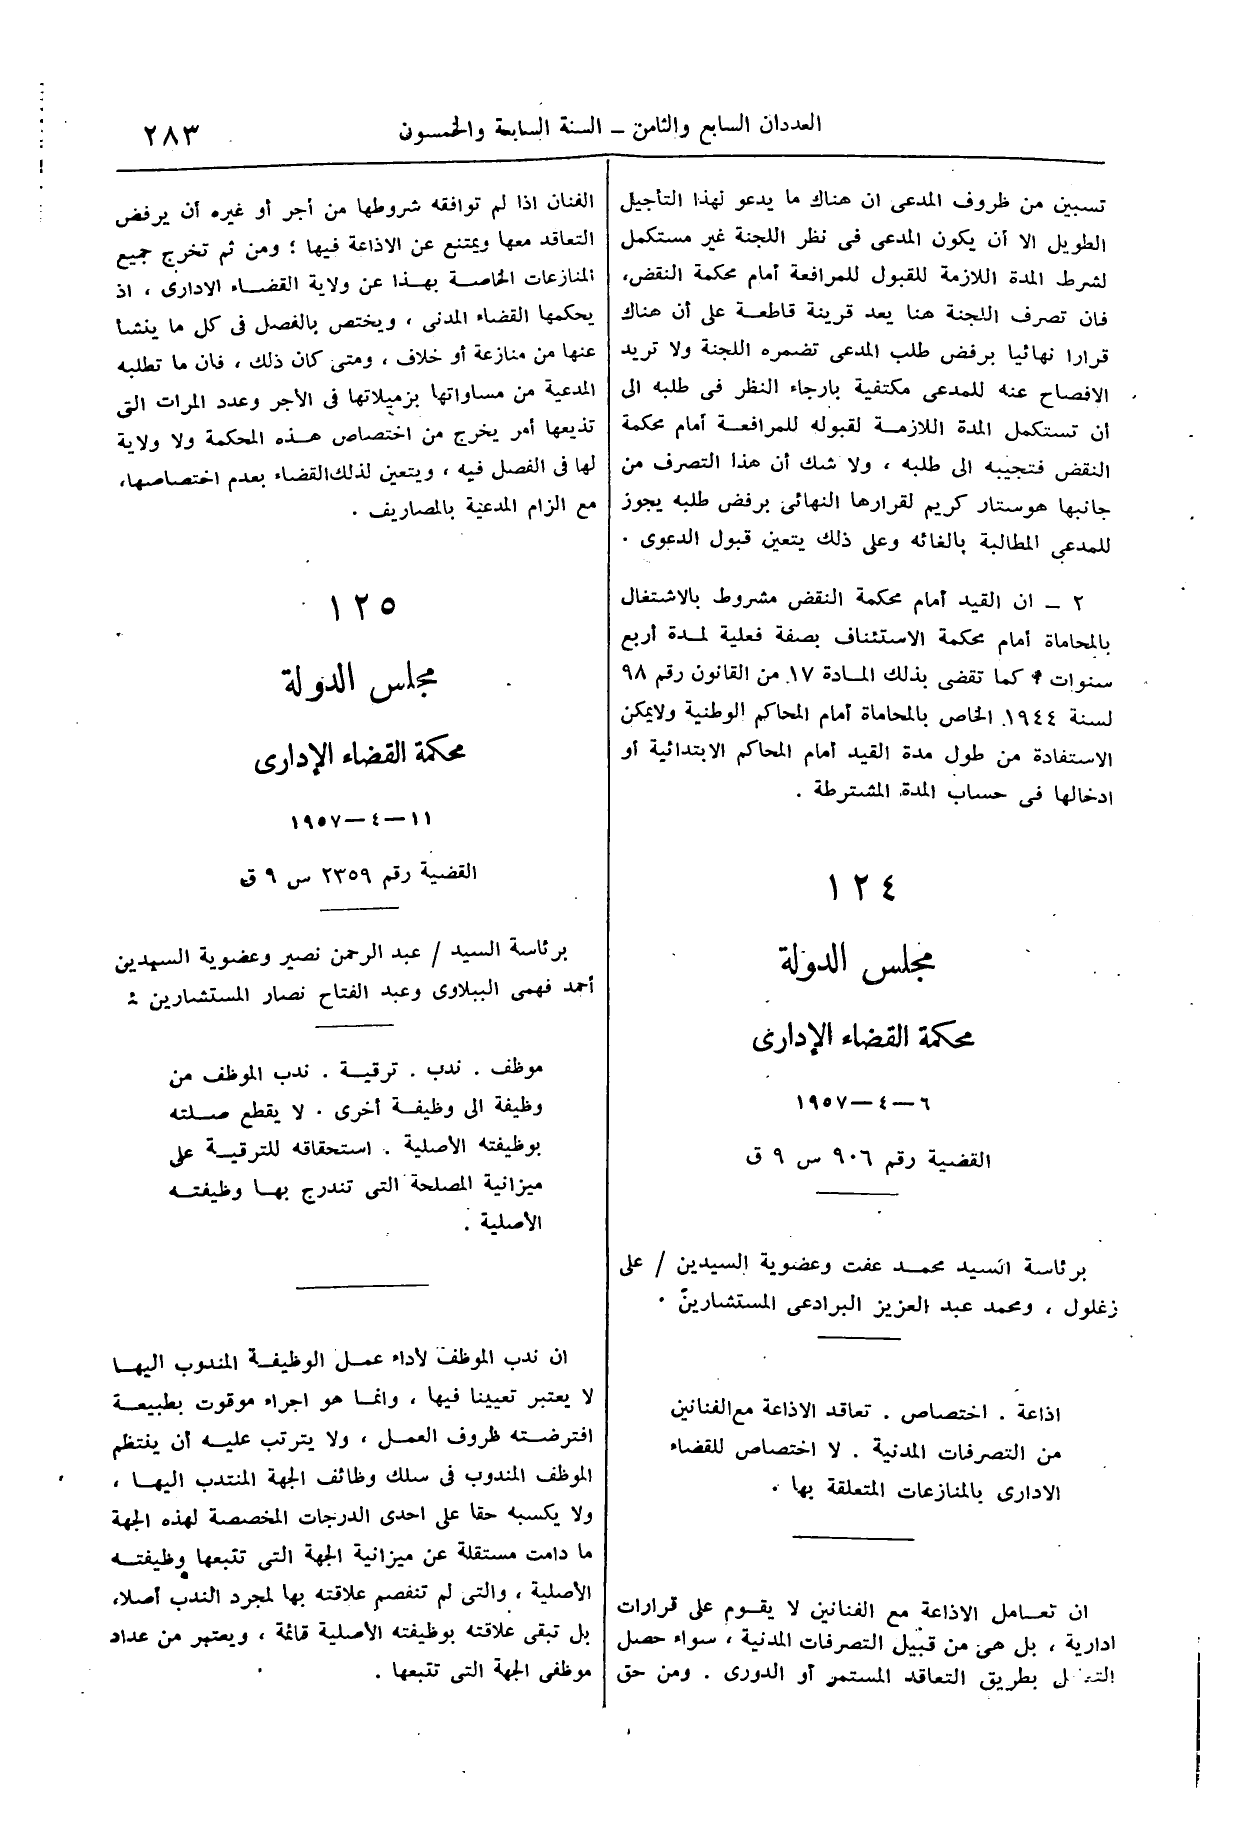 العددان السابع والثامن ــ السنة السابعة والخمسون
٢٨٣
تسبين من ظروف المدعى ان هناك ما يدعو لهذا التأجيل
الطويل الا أن يكون المدعى فى نظر اللجنة غير مستكمل
لشرط المدة اللازمة للقبول للمرافعة أمام محكمة النقض،
فان تصرف اللجنة هنا يعد قرينة قاطعة على أن هناك
قرارا نهائيا برفض طلب المدعى تضمره اللجنة ولا تريد
الافصاح عنه للمدعى مكتفية بارجاء النظر فى طلبه الى
أن تستكمل المدة اللازمة لقبوله للمرافعة أمام محكمة
النقض فتجيبه الى طلبه ، ولا شك أن هذا التصرف من
جانبها هوستار كريم لقرارها النهائى برفض طلبه يجوز
للمدعى المطالبة بالغائه وعلى ذلك يتعين قبول الدعوى .
٢ ــ ان القيد أمام محكمة النقض مشروط بالاشتغال
بالمحاماة أمام محكمة الاستئناف بصفة فعلية لمدة أربع
سنوات كما تقضى بذلك المادة ١٧ من القانون رقم ٩٨
لسنة ١٩٤٤ الخاص بالمحاماة أمام المحاكم الوطنية ولايمكن
الاستفادة من طول مدة القيد أمام المحاكم الابتدائية أو
ادخالها فى حساب المدة المشترطة .
١٢٤
مجلس الدولة
محكمة القضاء الإدارى
٦ــ٤ــ١٩٥٧
القضية رقم ٩٠٦ س ٩ ق
برئاسة السيد محمد عفت وعضوية السيدين / على
زغلول ، ومحمد عبد العزيز البرادعى المستشارين .
اذاعة . اختصاص . تعاقد الاذاعة مع الفنانين
من التصرفات المدنية . لا اختصاص للقضاء
الادارى بالمنازعات المتعلقة بها .
ان تعامل الاذاعة مع الفنانين لا يقوم على قرارات
ادارية ، بل هى من قبيل التصرفات المدنية ، سواء حصل
بطريق التعاقد المستمر أو الدورى . ومن حق
الفنان اذا لم توافقه شروطها من أجر أو غيره أن يرفض
التعاقد معها ويمتنع عن الاذاعة فيها ؛ ومن ثم تخرج جميع
المنازعات الخاصة بهذا عن ولاية القضاء الادارى ، اذ
يحكمها القضاء المدنى ، ويختص بالفصل فى كل ما ينشأ
عنها من منازعة أو خلاف ، ومتى كان ذلك ، فان ما تطلبه
المدعية من مساواتها بزميلاتها فى الأجر وعدد المرات التى
تذيعها أمر يخرج من اختصاص هذه المحكمة ولا ولاية
لها فى الفصل فيه ، ويتعين لذلك القضاء بعدم اختصاصها،
مع الزام المدعية بالمصاريف .
١٢٥
مجلس الدولة
محكمة القضاء الإدارى
١١ــ٤ــ١٩٥٧
القضية رقم ٢٣٥٩ س ٩ ق
برئاسة السيد / عبد الرحمن نصير وعضوية السيدين
أحمد فهمى الببلاوى وعبد الفتاح نصار المستشارين :
موظف . ندب . ترقية . ندب الموظف من
وظيفة الى وظيفة أخرى . لا يقطع صلته
بوظيفته الأصلية . استحقاقه للترقية على
ميزانية المصلحة التى تندرج بها وظيفته
الأصلية .
ان ندب الموظف لأداء عمل الوظيفة المندوب اليها
لا يعتبر تعيينا فيها ، وانما هو اجراء موقوت بطبيعة
افترضته ظروف العمل ، ولا يترتب عليه أن ينتظم
الموظف المندوب فى سلك وظائف الجهة المنتدب اليها ،
ولا يكسبه حقا على احدى الدرجات المخصصة لهذه الجهة
ما دامت مستقلة عن ميزانية الجهة التى تتبعها وظيفته
الأصلية ، والتى لم تنفصم علاقته بها لمجرد الندب أصلا،
بل تبقى علاقته بوظيفته الأصلية قائمة ، ويعتبر من عداد
موظفى الجهة التى تتبعها .